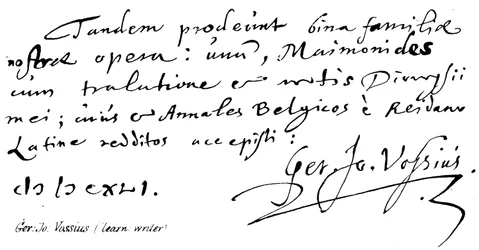 Tandem prodeunt bina familiæ
nostræ opera: unũ, Maimonides
cum tralatione & notis Dionysii
mei; cujus & Annales Belgicos è Reidano
Latine redditos accepisti:
Ger. Jo. Vossius.
Ger. Jo. Vossius (learn. writer)